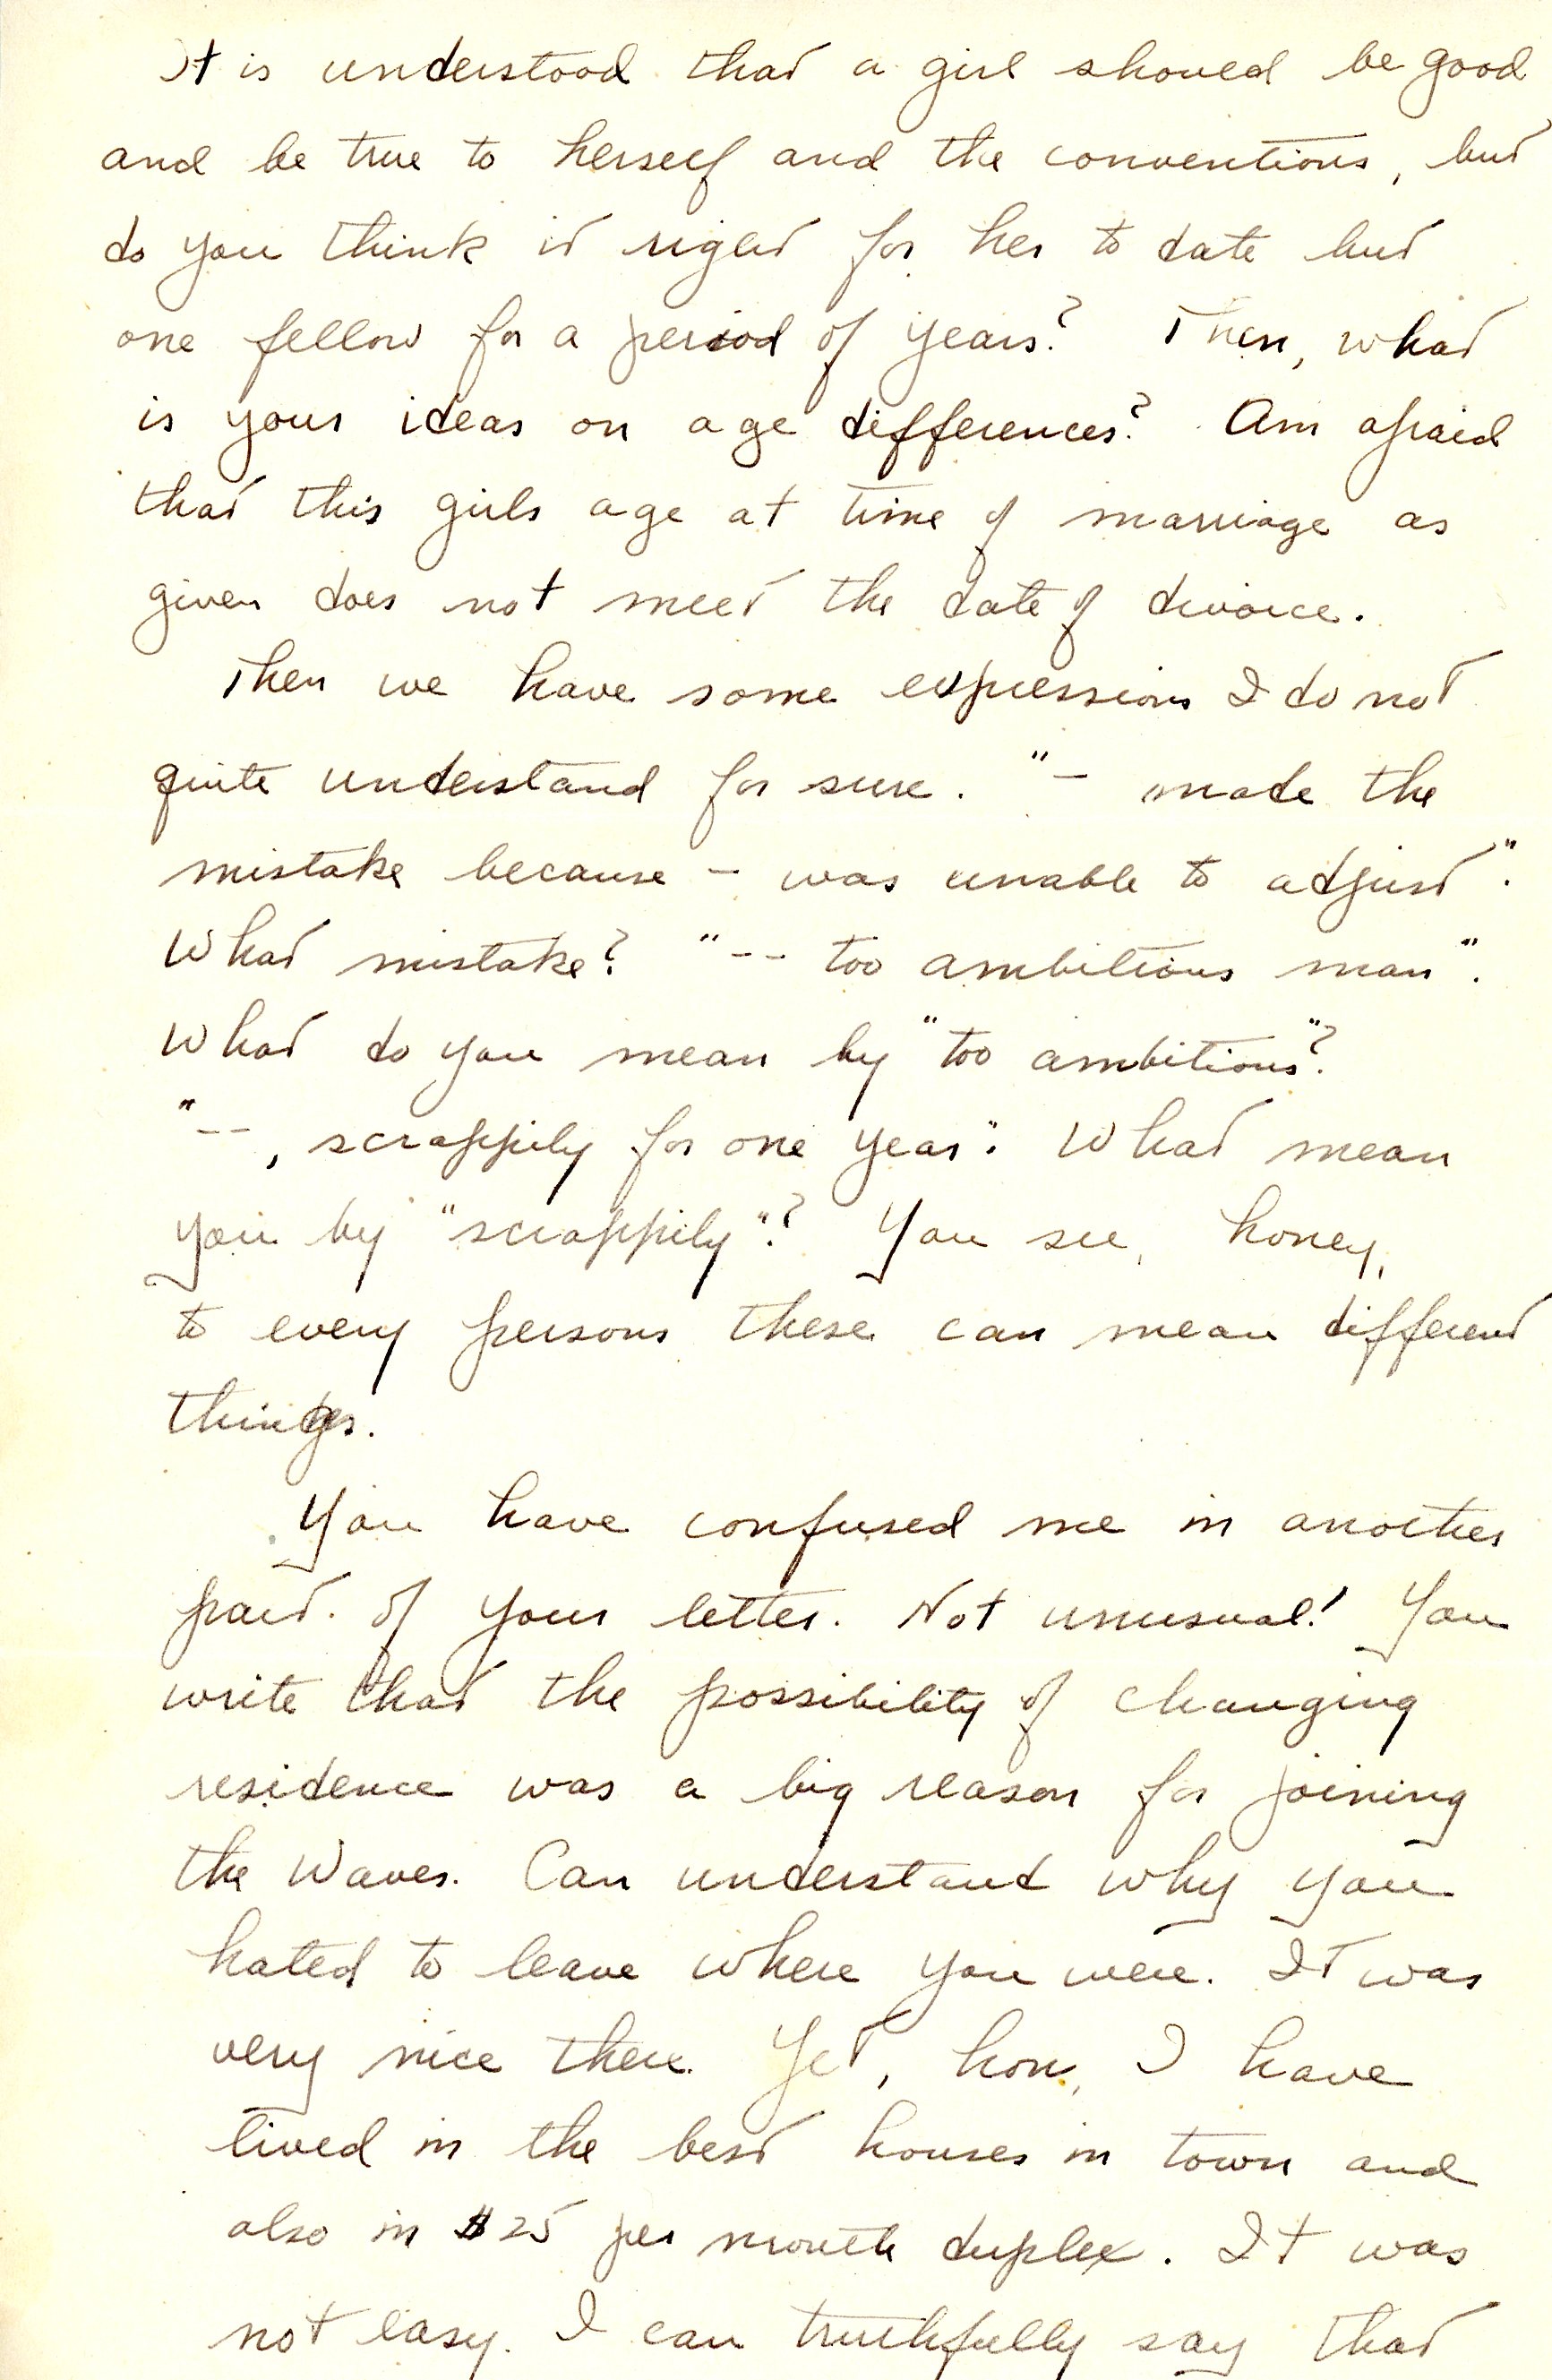 It is understood that a girl should be good
and be true to herself and the conventions, but
do you think it right for her to date but
one fellow for a period of years? Then, what
is your ideas on age differences? Am afraid
that this girls age at time of marriage as
given does not meet the date of divorce.
Then we have some expressions I do not
quite understand for sure. "— made the
mistake because – was unable to adjust".
What mistake? "-- too ambitious man".
What do you mean by "too ambitious"?
"--, scrappily for one year". What mean
you by "scrappily"? You see, honey,
to every persons these can mean different
things.
You have confused me in another
part of your letter. Not unusual! You
write that the possibility of changing
residence was a big reason for joining
the Waves. Can understand why you
hated to leave where you were. It was
very nice there. Yet, hon, I have
lived in the best houses in town and
also in $25 per month duplex. It was
not easy. I can truthfully say that